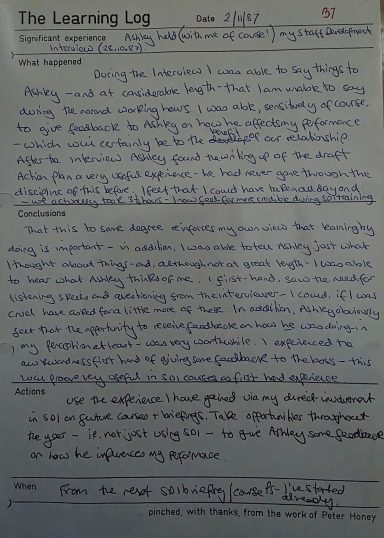 The Learning Log Date 2/11/87 37
Significant experience Ashley held (with me of course!) my Staff Development
Interview (28.10.87).
What happened
During the Interview I was able to say things to
Ashley - and at considerable length - that I am unable to say
during the normal working hours. I was able, sensitively of course,
to give feedback to Ashley on how he affects my performance
- which will certainly be to the benefit of our relationship
After the Interview Ashley found the writing up of the draft
Action plan a very useful experience - he had never gone through the
discipline of this before. I feel that I could have taken out a day and
- we actually took 3½ hours - I now feel far more credible during SDI training.
Conclusions
That this to some degree reinforces my own view that learning by
doing is important - in addition, I was able to tell Ashley just what
I thought about things - and, although not at great length - I was able
to hear what Ashley thinks of me. I first-hand, saw the need for
listening skills and questioning from the interviewer - I could, if I was
cruel have asked for a little more of these. In addition, Ashley obviously
felt that the opportunity to receive feedback on how he was doing - in
my perception at least - was very worthwhile. I experienced the
awkwardness first hand of giving some feedback to the boss - this
will prove very useful in SDI courses as first hand experience
Actions
Use the experience I have gained via my direct involvement
in SDI on future courses + briefings. Take opportunities throughout
the year - i.e. not just using SDI - to give Ashley some feedback
on how he influences my performance.
When
From the next SDI briefing/course - I've started
already.
pinched, with thanks, from the work of Peter Honey